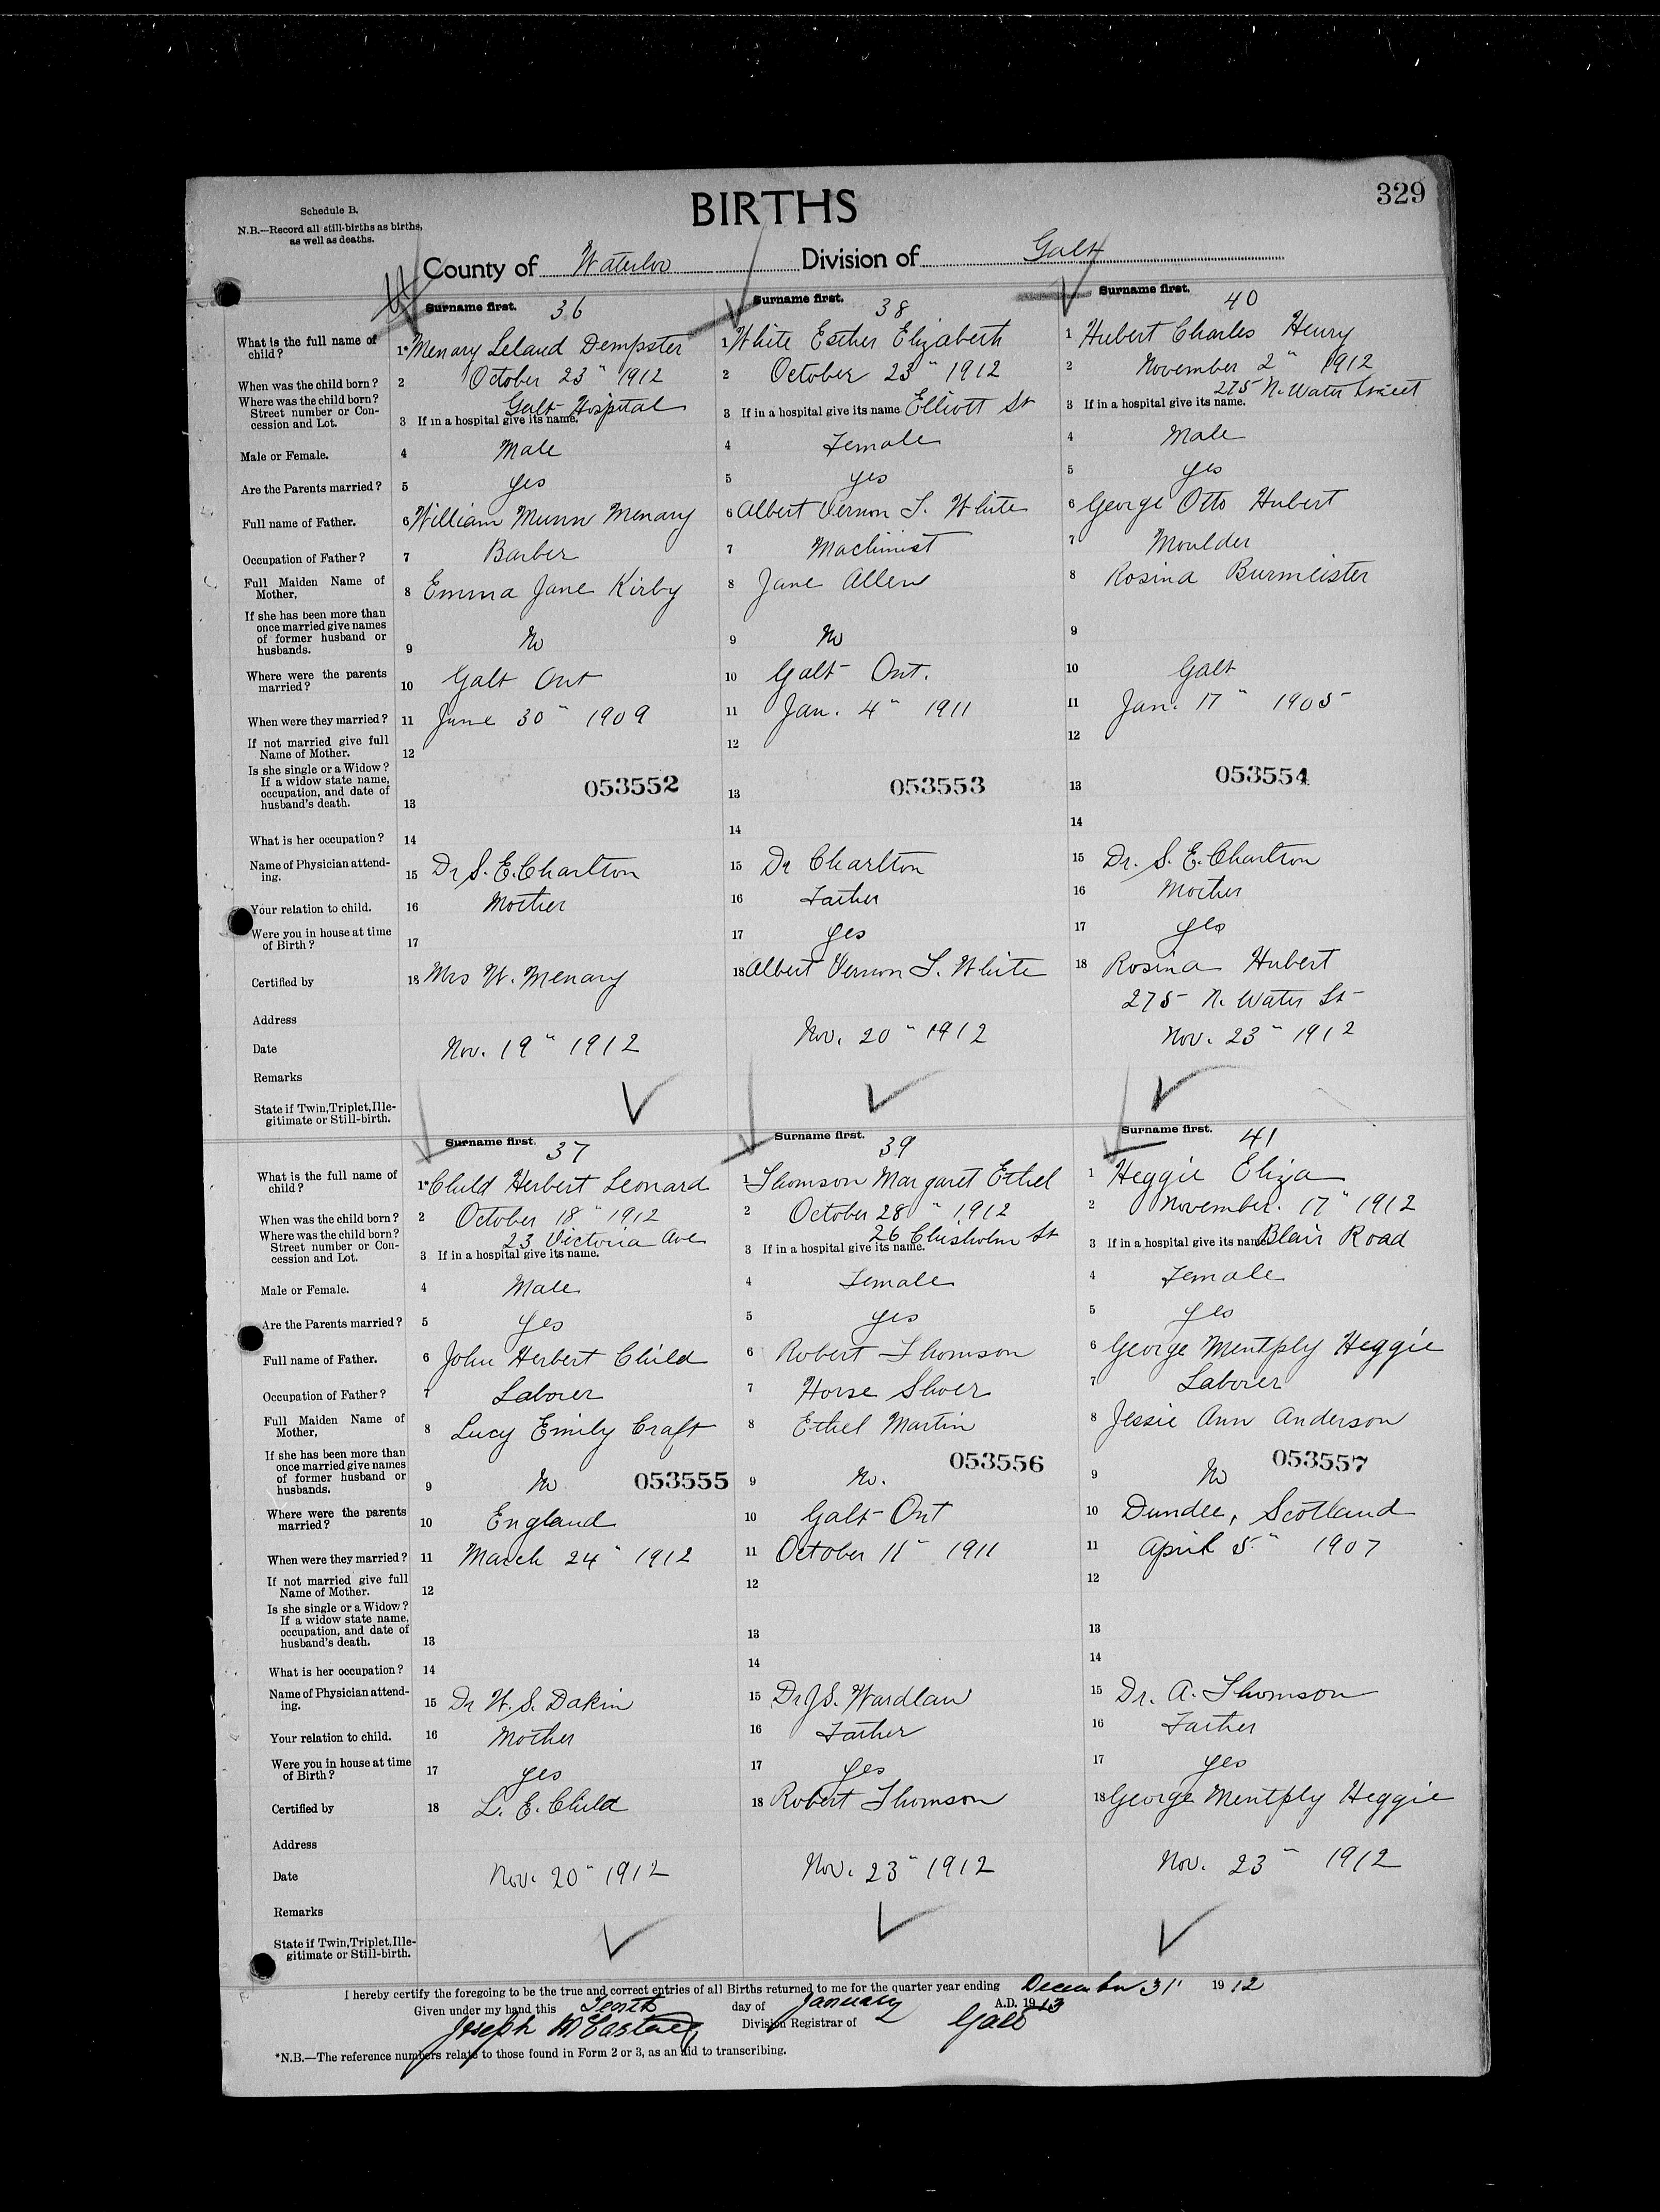 329
Schedule B.
N.B.—Record all still-births as births,
as well as deaths.
BIRTHS
County of Waterloo Division of Galt
Surname first. 36
What is the full name of child? 1* Menary Leland Dempster
When was the child born? 2 October 23" 1912
Where was the child born? Street number or Concession and Lot. 3 If in a hospital give its name. Galt Hospital
Male or Female. 4 Male
Are the Parents married? 5 yes
Full name of Father. 6 William Munn Menary
Occupation of Father? 7 Barber
Full Maiden Name of Mother, 8 Emma Jane Kirby
If she has been more than once married give names of former husband or husbands. 9 No
Where were the parents married? 10 Galt Ont
When were they married? 11 June 30" 1909
If not married give full Name of Mother. 12
Is she single or a Widow? If a widow state name, occupation, and date of husband's death. 13 053552
What is her occupation? 14
Name of Physician attending. 15 Dr S. E. Charlton
Your relation to child. 16 Mother
Were you in house at time of Birth? 17
Certified by 18 Mrs W. Menary
Address
Date Nov. 19" 1912
Remarks
State if Twin, Triplet, Illegitimate or Still-birth.
Surname first. 38
1 White Esther Elizabeth
2 October 23" 1912
3 If in a hospital give its name Elliott St
4 Female
5 yes
6 Albert Vernon S. White
7 Machinist
8 Jane Allen
9 No
10 Galt Ont.
11 Jan. 4" 1911
12
13 053553
14
15 Dr Charlton
16 Father
17 yes
18 Albert Vernon S. White
Nov. 20" 1912
Surname first. 40
1 Hubert Charles Henry
2 November 2" 1912
3 If in a hospital give its name. 275 N. Water Street
4 Male
5 yes
6 George Otto Hubert
7 Moulder
8 Rosina Burmeister
9
10 Galt
11 Jan. 17" 1905
12
13 053554
14
15 Dr. S. E. Charlton
16 Mother
17 yes
18 Rosina Hubert
275 N. Water St
Nov. 23" 1912
Surname first. 37
What is the full name of child? 1* Child Herbert Leonard
When was the child born? 2 October 18" 1912
Where was the child born? Street number or Concession and Lot. 3 If in a hospital give its name. 23 Victoria Ave
Male or Female. 4 Male
Are the Parents married? 5 yes
Full name of Father. 6 John Herbert Child
Occupation of Father? 7 Laborer
Full Maiden Name of Mother, 8 Lucy Emily Craft
If she has been more than once married give names of former husband or husbands. 9 No 053555
Where were the parents married? 10 England
When were they married? 11 March 24" 1912
If not married give full Name of Mother. 12
Is she single or a Widow? If a widow state name, occupation, and date of husband's death. 13
What is her occupation? 14
Name of Physician attending. 15 Dr W. S. Dakin
Your relation to child. 16 Mother
Were you in house at time of Birth? 17 yes
Certified by 18 L. E. Child
Address
Date Nov. 20" 1912
Remarks
State if Twin, Triplet, Illegitimate or Still-birth.
Surname first. 39
1 Thomson Margaret Ethel
2 October 28" 1912
3 If in a hospital give its name. 26 Chisholm St
4 Female
5 yes
6 Robert Thomson
7 Horse Shoer
8 Ethel Martin
9 No. 053556
10 Galt Ont
11 October 11" 1911
12
13
14
15 Dr J S. Wardlaw
16 Father
17 yes
18 Robert Thomson
Nov. 23" 1912
Surname first. 41
1 Heggie Eliza
2 November. 17" 1912
3 If in a hospital give its name Blair Road
4 Female
5 yes
6 George Mentply Heggie
7 Laborer
8 Jessie Ann Anderson
9 No 053557
10 Dundee, Scotland
11 April 5" 1907
12
13
14
15 Dr. A. Thomson
16 Father
17 yes
18 George Mentply Heggie
Nov. 23" 1912
I hereby certify the foregoing to be the true and correct entries of all Births returned to me for the quarter year ending December 31 1912
Given under my hand this Tenth day of January A.D. 1913
Joseph Division Registrar of Galt
*N.B.—The reference numbers relate to those found in Form 2 or 3, as an aid to transcribing.